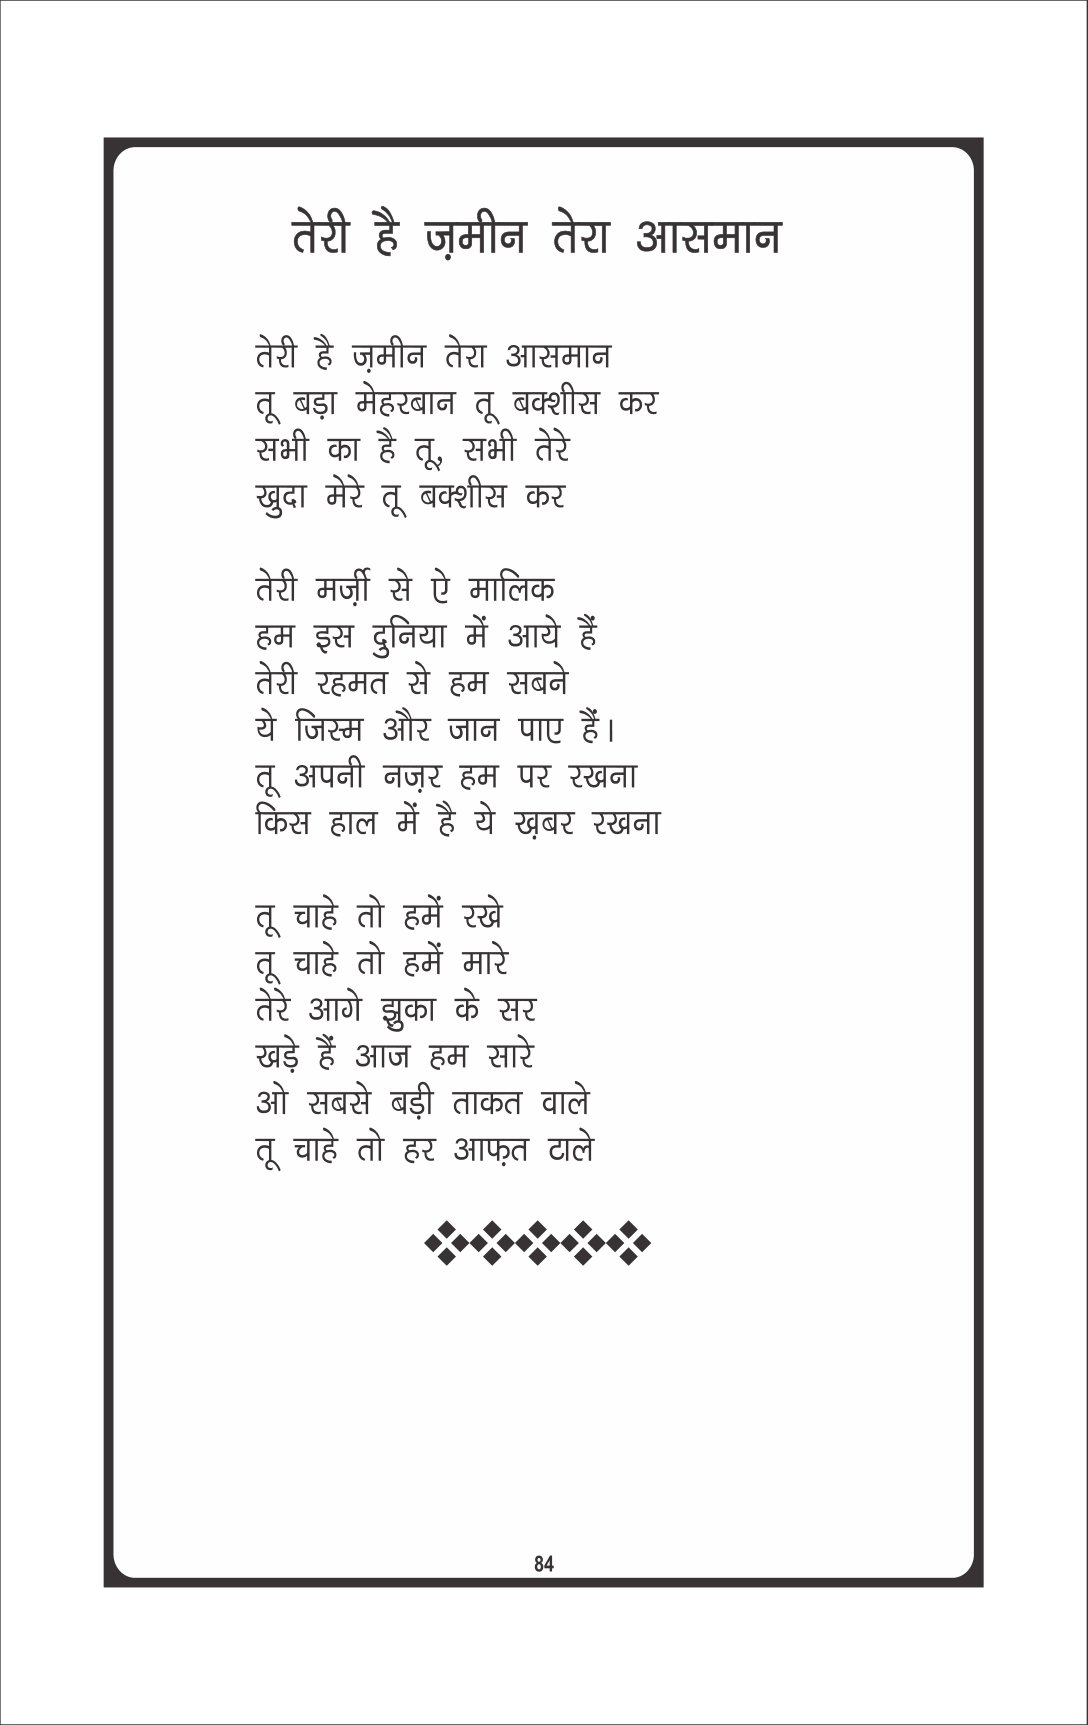 तेरी है ज़मीन तेरा आसमान
तेरी है ज़मीन तेरा आसमान
तू बड़ा मेहरबान तू बक्शीस कर
सभी का है तू, सभी तेरे
खुदा मेरे तू बक्शीस कर
तेरी मर्ज़ी से ऐ मालिक
हम इस दुनिया में आये हैं
तेरी रहमत से हम सबने
ये जिस्म और जान पाए हैं।
तू अपनी नज़र हम पर रखना
किस हाल में है ये ख़बर रखना
तू चाहे तो हमें रखे
तू चाहे तो हमें मारे
तेरे आगे झुका के सर
खड़े हैं आज हम सारे
ओ सबसे बड़ी ताकत वाले
तू चाहे तो हर आफ़त टाले
84